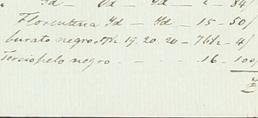 Id — Id — 2 — 84/
Florentina Id — Id — 15 — 50/
burato negro 19. 20. 20 — 4/
Terciopelo negro — — — 16 — 100/